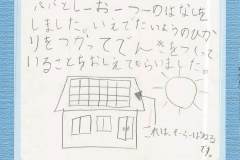 パパとしーおーつーのはなしを
しました。いえでたいようのひか
りをつかってでんきをつくって
いることをおしえてもらいました。
これは、そーらーぱねる
です。